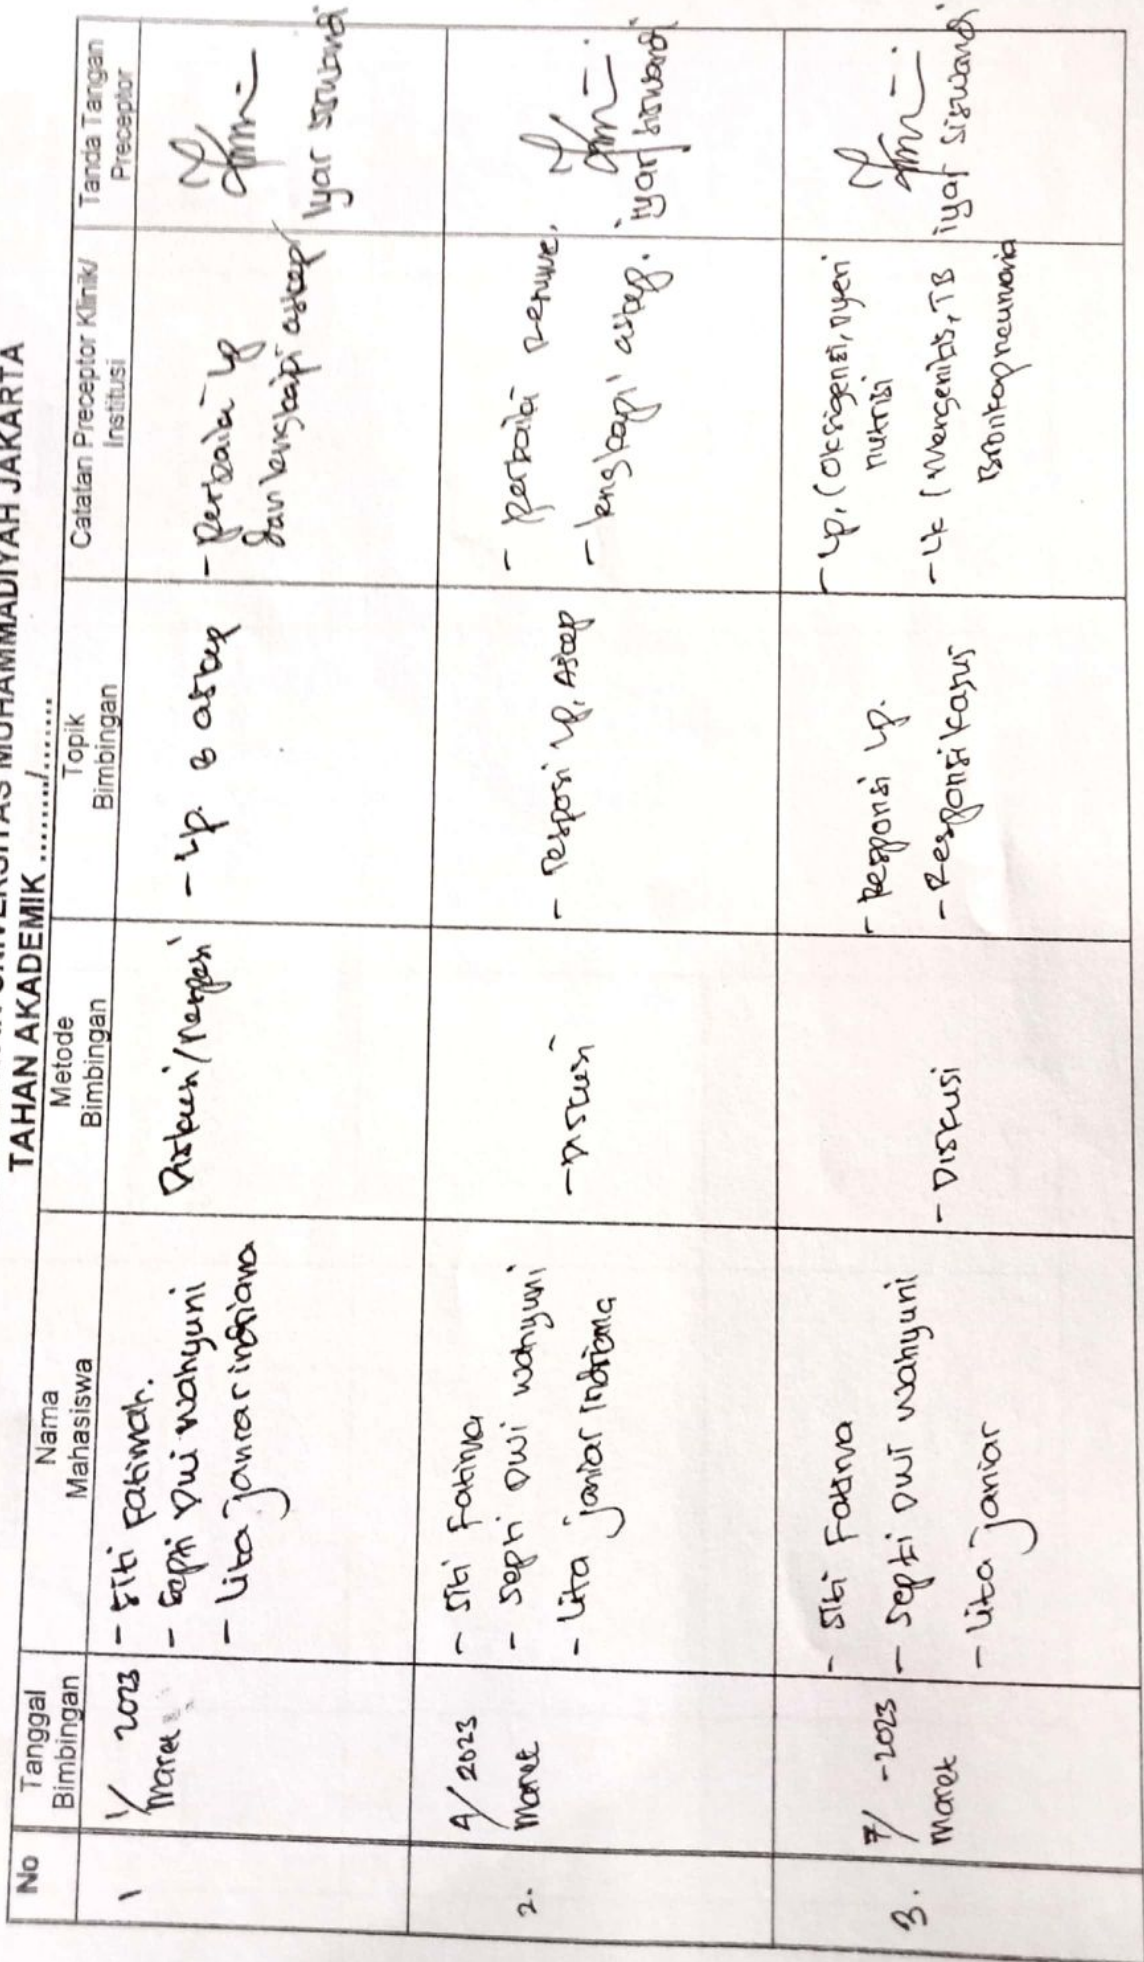 UNIVERSITAS MUHAMMADIYAH JAKARTA
TAHAN AKADEMIK ......../.......
No
Tanggal
Bimbingan
Nama
Mahasiswa
Metode
Bimbingan
Topik
Bimbingan
Catatan Preceptor Klinik/
Institusi
Tanda Tangan
Preceptor
1
1/ 2023
Maret
- Siti Fatimah.
- Septi Dwi Wahyuni
- Lita janiar indriana
Diskusi/Respasi
- Lp. & askep
- perbaiki Lp
dan lengkapi askep
iyar siswandi
2.
4/ 2023
Maret
- Siti Fatima
- Septi Dwi Wahyuni
- Lita janiar Indriana
- Diskusi
- resposi Lp, Askep
- perbaiki resume.
- lengkapi askep.
iyar siswandi
3.
7/ -2023
Maret
- Siti Fatima
- Septi Dwi Wahyuni
- Lita janiar
- Diskusi
- Responsi Lp.
- Responsi Kasus
- Lp, (Oksigensi, nyeri
nutrisi
- Lk (Mengenitis, TB
Bronkopneumonia
iyar siswandi